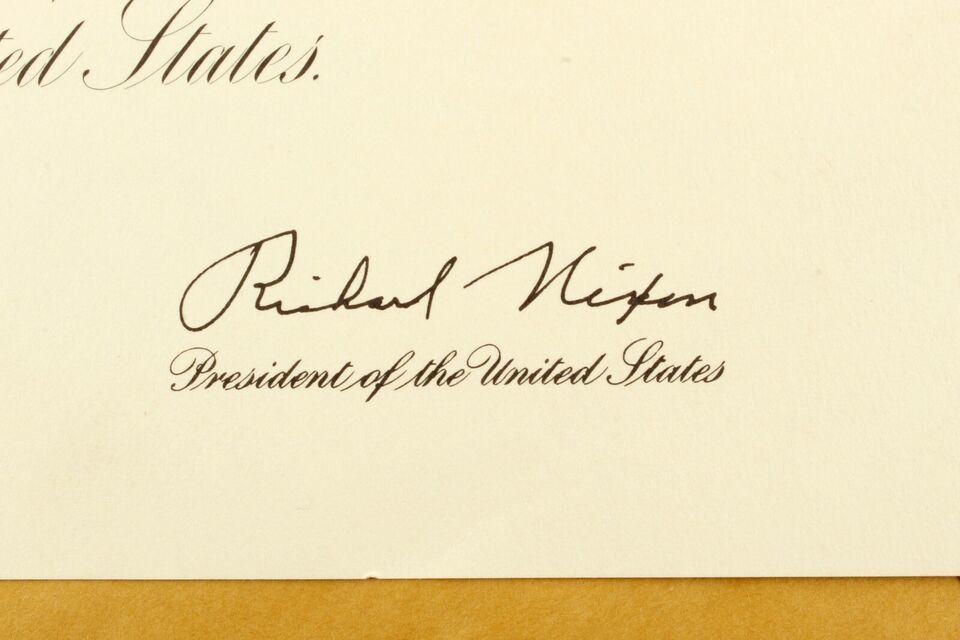 ted States.
Richard Nixon
President of the United States